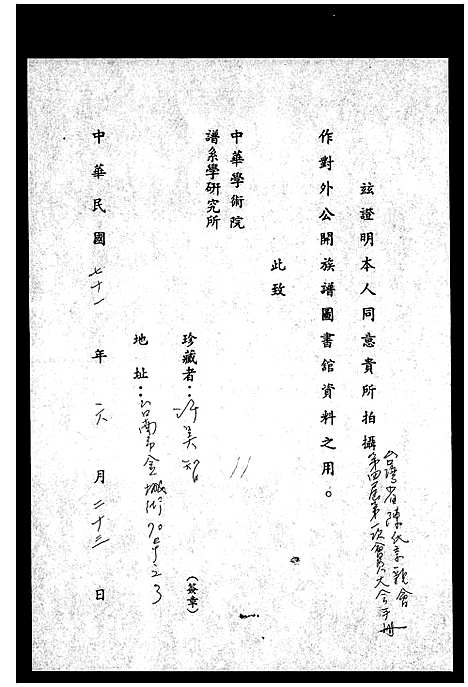 茲證明本人同意貴所拍攝台灣省陳氏宗親會
第四屆第一次會員大會手冊
作對外公開族譜圖書館資料之用。
此致
中華學術院
譜系學研究所
珍藏者：許吳智
(簽章)
地址：台南市金城街70号之3
中華民國七十一年六月二十三日